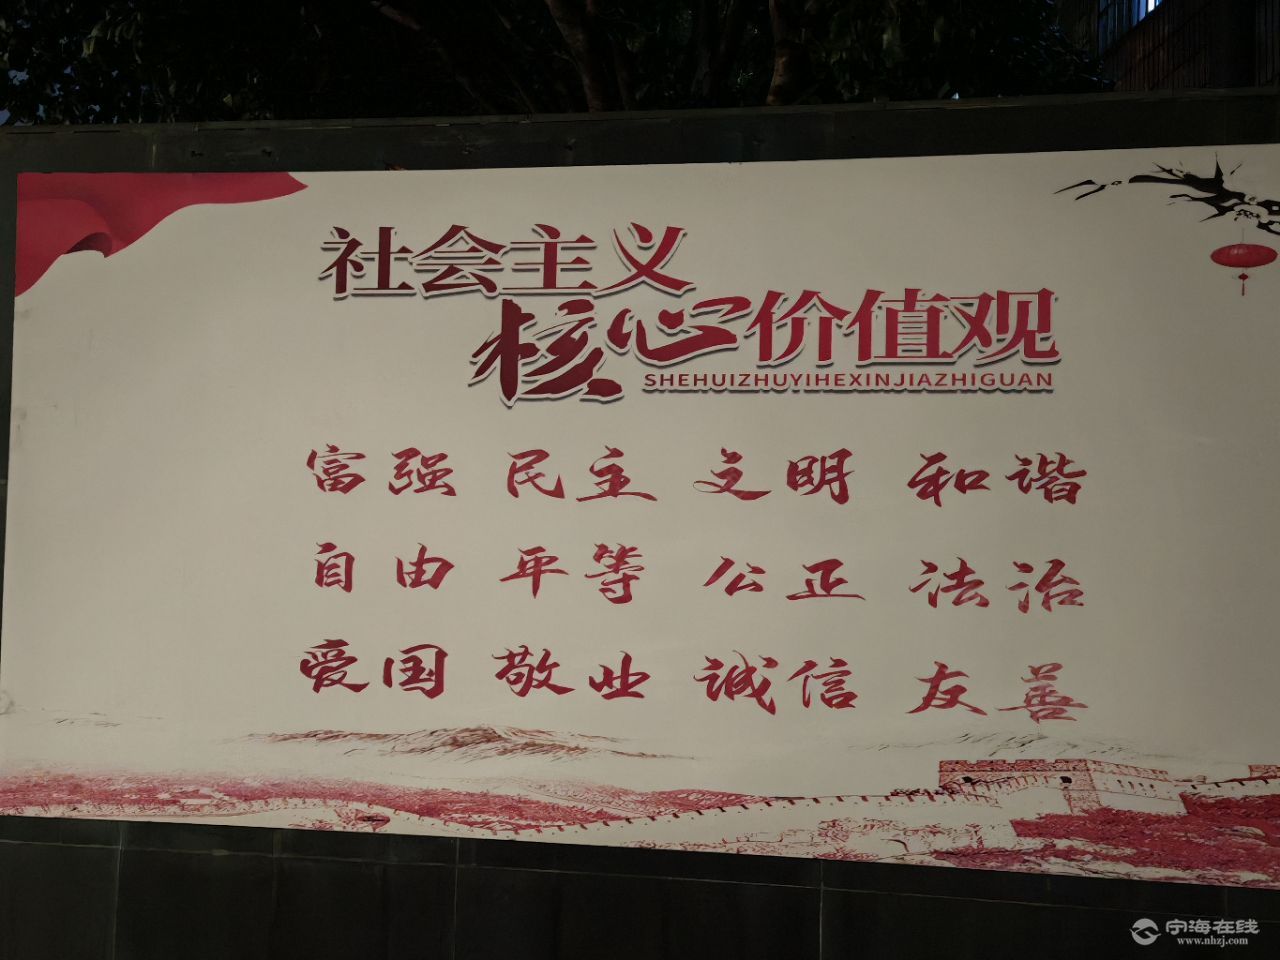 社会主义
核心价值观
SHEHUIZHUYIHEXINJIAZHIGUAN
富强 民主 文明 和谐
自由 平等 公正 法治
爱国 敬业 诚信 友善
宁海在线
www.nhzj.com